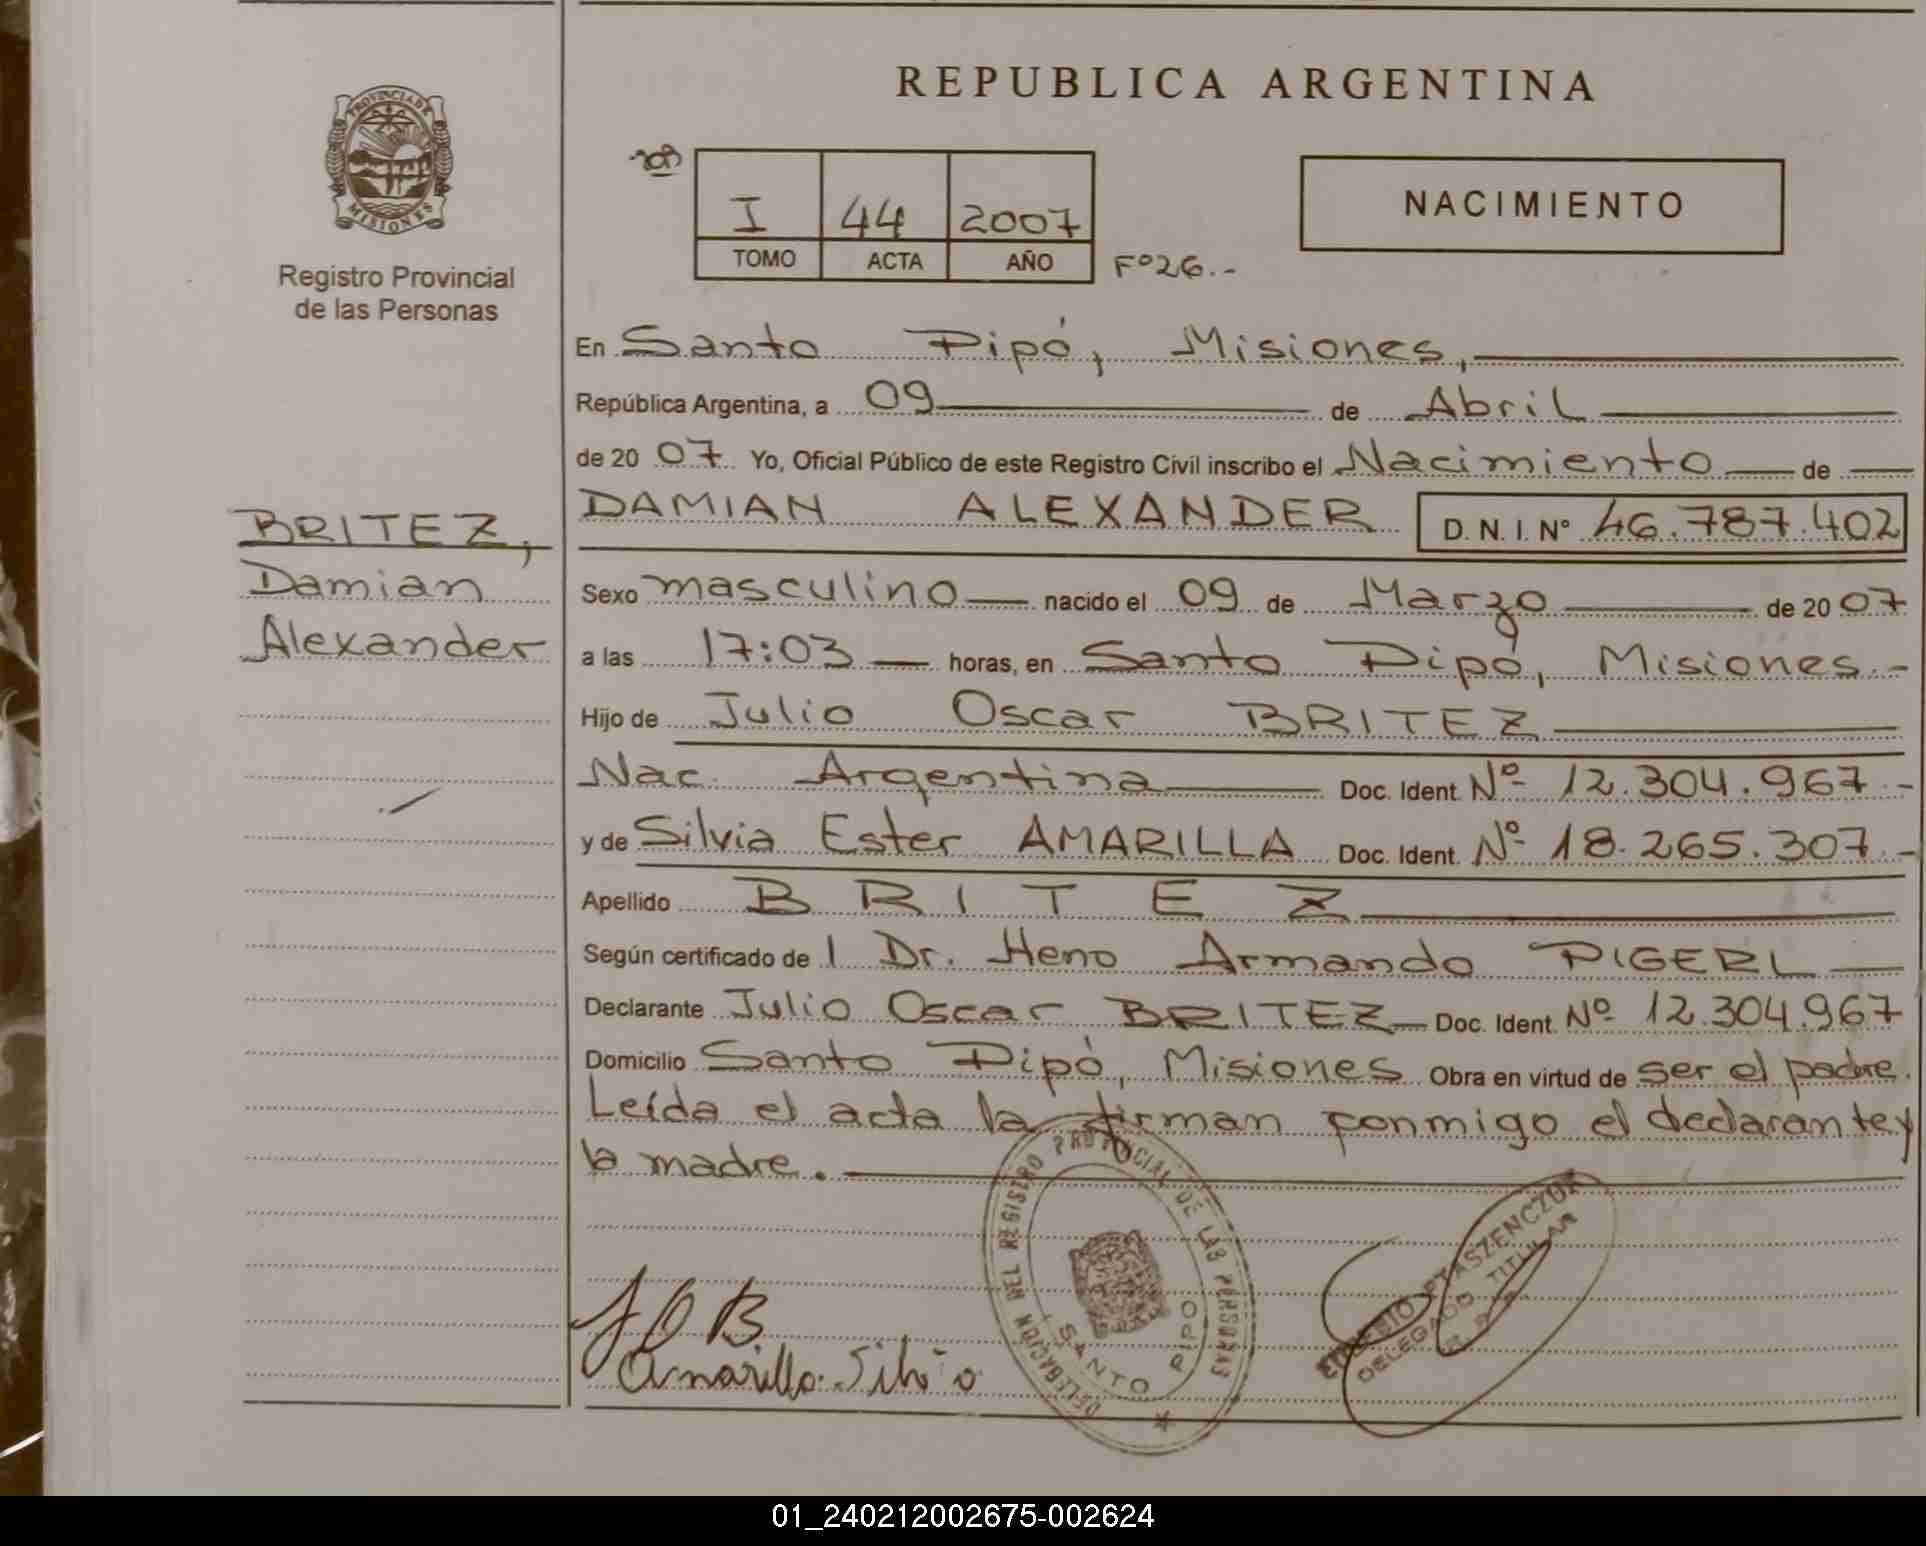 PROVINCIA DE
MISIONES
Registro Provincial
de las Personas
REPUBLICA ARGENTINA
I 44 2007
TOMO ACTA AÑO
Fº26.-
NACIMIENTO
En Santo Pipó, Misiones,
República Argentina, a 09 de Abril
de 20 07 Yo, Oficial Público de este Registro Civil inscribo el Nacimiento de
DAMIAN ALEXANDER D. N. I. Nº 46.787.402
BRITEZ,
Damian
Alexander
Sexo masculino nacido el 09 de Marzo de 20 07
a las 17:03 horas, en Santo Pipó, Misiones.-
Hijo de Julio Oscar BRITEZ
Nac. Argentina Doc. Ident. Nº 12.304.967.-
y de Silvia Ester AMARILLA Doc. Ident. Nº 18.265.307.-
Apellido BRITEZ
Según certificado de l Dr. Heno Armando PIGERL
Declarante Julio Oscar BRITEZ Doc. Ident. Nº 12.304.967
Domicilio Santo Pipó, Misiones Obra en virtud de ser el padre.
Leída el acta la firman conmigo el declarante y
la madre.
DELEGACION DEL REGISTRO PROVINCIAL DE LAS PERSONAS
SANTO PIPO
PTASZENCZUK
DELEGADO TITULAR
JOB
Amarilla Silvia
01_240212002675-002624